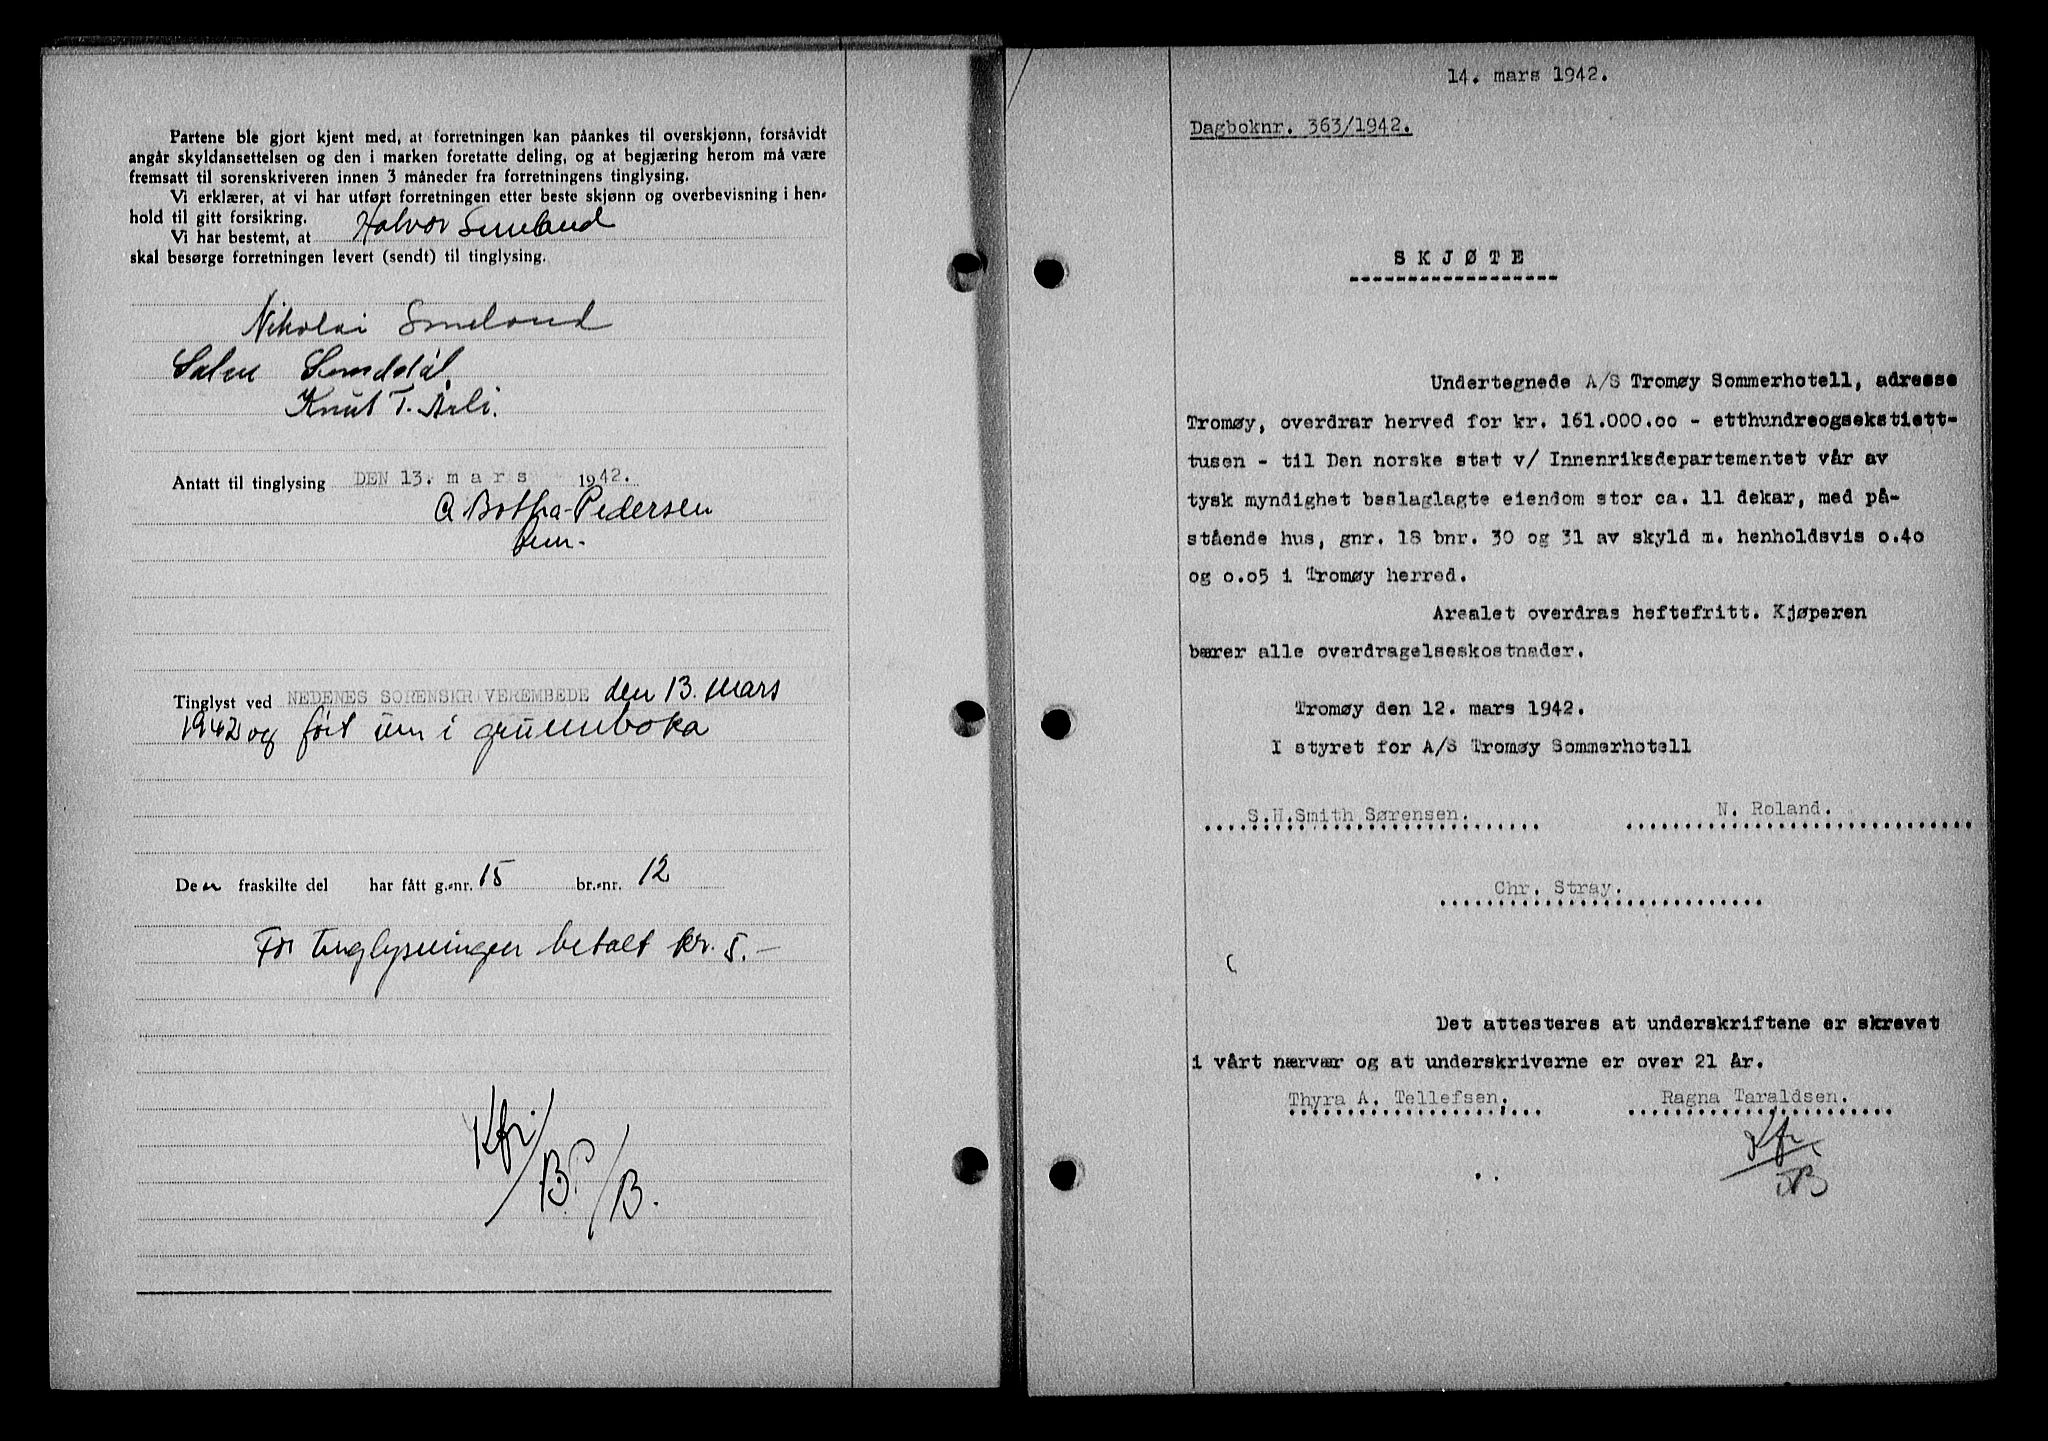 Partene ble gjort kjent med, at forretningen kan påankes til overskjønn, forsåvidt
angår skyldansettelsen og den i marken foretatte deling, og at begjæring herom må være
fremsatt til sorenskriveren innen 3 måneder fra forretningens tinglysing.
Vi erklærer, at vi har utført forretningen etter beste skjønn og overbevisning i hen-
hold til gitt forsikring.
Vi har bestemt, at Halvor Smeland
skal besørge forretningen levert (sendt) til tinglysing.
Nikolai Smeland
Knut T.
Antatt til tinglysing DEN 13. mars 1942.
A Botha-Pedersen
Tinglyst ved NEDENES SORENSKRIVEREMBEDE den 13. mars
1942 og ført inn i grunnboka
Den fraskilte del har fått g.-nr. 15 br.-nr. 12
For tinglysningen betalt kr. 5.-
Kfr/
B.P/
B.
14. mars 1942.
Dagboknr. 363/1942.
SKJØTE
Undertegnede A/S Tromøy Sommerhotell, adresse
Tromøy, overdrar herved for kr. 161.000.00 - etthundreogsekstiett-
tusen - til Den norske stat v/ Innenriksdepartementet vår av
tysk myndighet beslaglagte eiendom stor ca. 11 dekar, med på-
stående hus, gnr. 18 bnr. 30 og 31 av skyld m. henholdsvis 0.40
og 0.05 i Tromøy herred.
Arealet overdras heftefritt. Kjøperen
bærer alle overdragelseskostnader.
Tromøy den 12. mars 1942.
I styret for A/S Tromøy Sommerhotell
S.H.Smith Sørensen. N. Roland.
Chr. Stray.
Det attesteres at underskriftene er skrevet
i vårt nærvær og at underskriverne er over 21 år.
Thyra A. Tellefsen. Ragna Taraldsen.